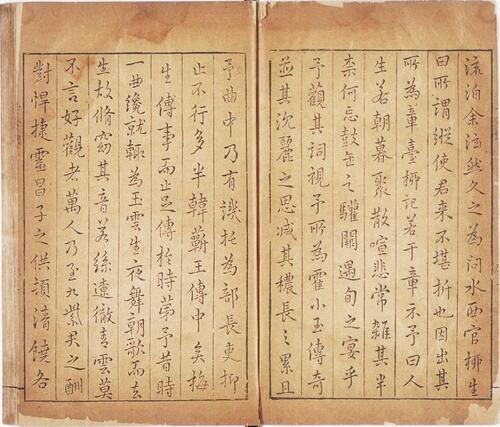 流泊余泫然久之為問水西官柳生
曰所謂縱使君来不堪折也因出其
所為章臺柳記若干章示予曰人
生若朝暮聚散喧悲常雜其半
柰何忘鼓缶之驩闕遇旬之宴乎
予觀其詞視予所為霍小玉傳奇
並其沉麗之思减其穠長之累且
予曲中乃有譏托為部長吏抑
止不行多半韓蘄王傳中矣梅
生傳事而止足傳於時第予昔時
一曲纔就輙為玉雲生夜舞朝歌而去
生故脩窈其音若絲遼徹青雲莫
不言好觀者萬人乃至九紫君之酬
對悍捷靈昌子之供頓清饒各